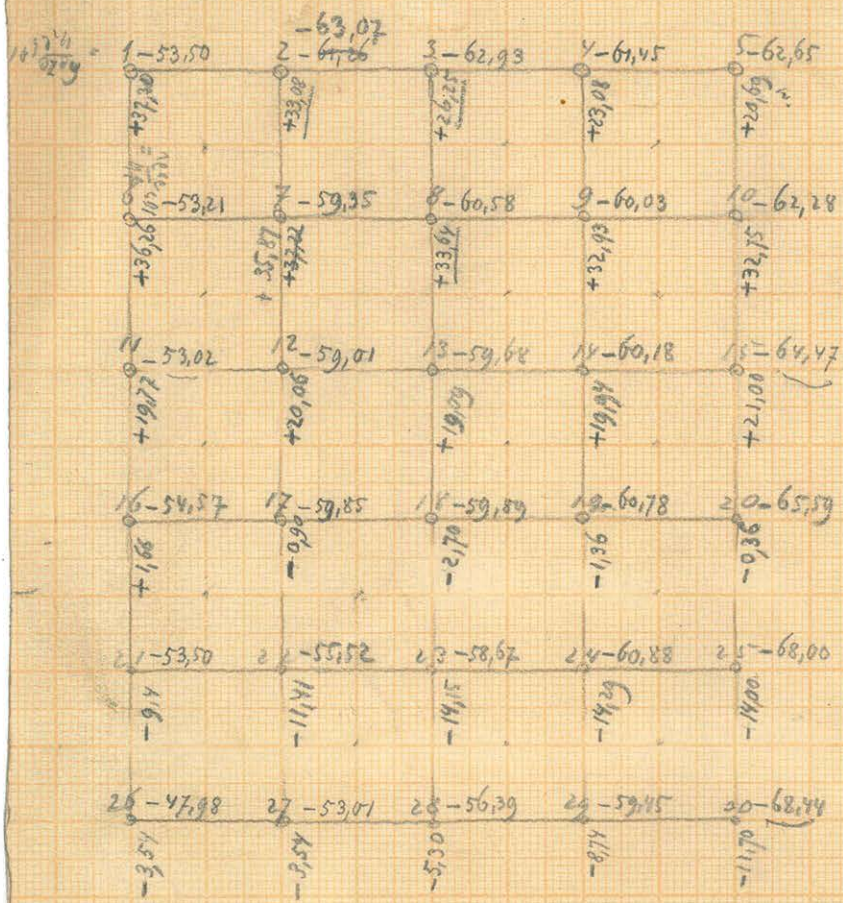 -63,07
1 -53,50 2 -61,26 3 -62,93 4 -61,45 5 -62,65
+37,20 +33,08 +26,25 +23,08 +20,69 ?
6 -53,21 7 -59,35 8 -60,58 9 -60,03 10 -62,28
+36,29 +35,87 +37,22 +33,64 +32,93 +32,75
11 -53,02 12 -59,01 13 -59,68 14 -60,18 15 -64,47
+19,77 +20,06 +19,09 +19,94 +21,00
16 -54,57 17 -59,85 18 -59,89 19 -60,78 20 -65,59
+1,66 -0,90 -2,70 -1,36 -0,36
21 -53,50 22 -55,52 23 -58,67 24 -60,88 25 -68,00
-9,4 -11,41 -14,15 -14,29 -14,00
26 -47,98 27 -53,01 28 -56,39 29 -59,45 30 -68,44
-3,54 -3,54 -5,30 -8,74 -11,70